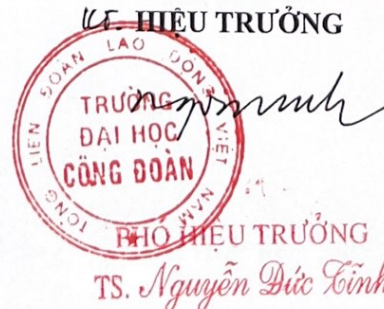 KT. HIỆU TRƯỞNG
TỔNG LIÊN ĐOÀN LAO ĐỘNG VIỆT NAM
TRƯỜNG
ĐẠI HỌC
CÔNG ĐOÀN
PHÓ HIỆU TRƯỞNG
TS. Nguyễn Đức Tĩnh